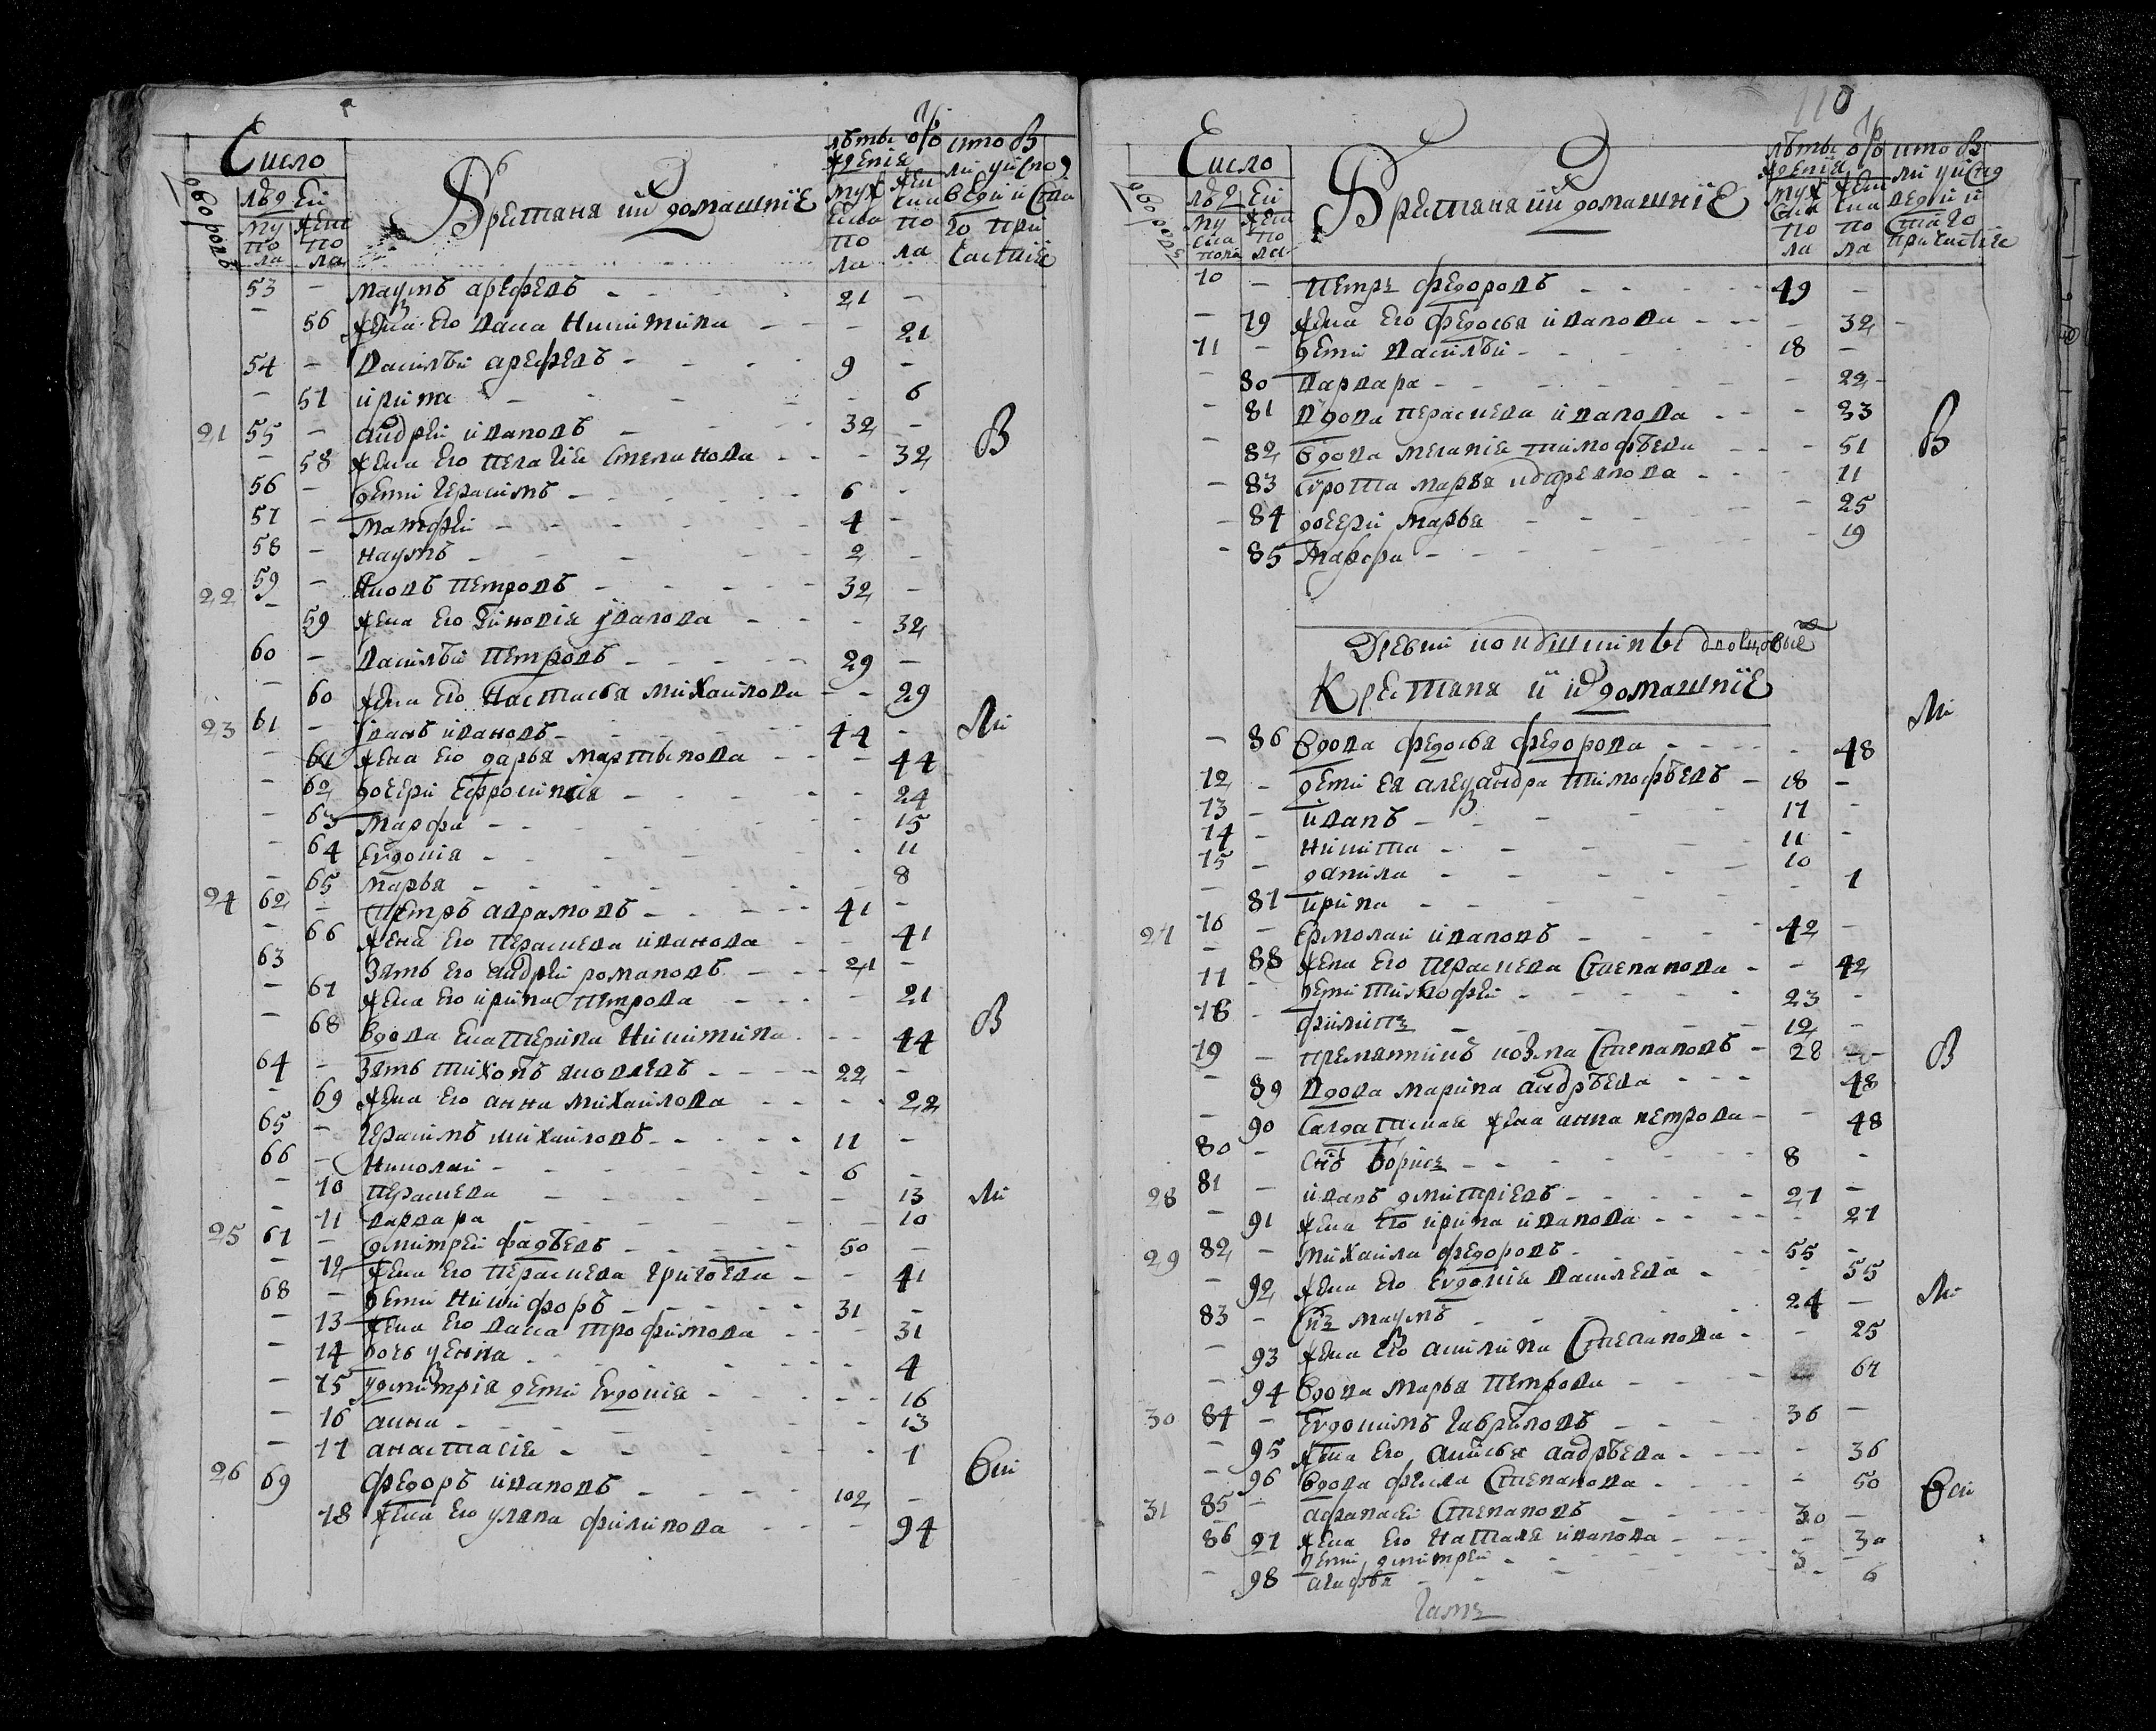 Число
дворовъ
людей
му по ла
жен по ла
Крестьяня и ихъ домашнїе
53 - Маѯимъ арефьевъ - 21 -
- 56 жена его Васса Никитина - - 21
54 - Василѣй арефьевъ - 9 -
- 57 ирина - - 6
21 55 - андрей ивановъ - 32 -
- 58 жена его пелагїя Степанова - - 32
56 - дети герасимъ - 6 -
57 - матфей - 4 -
58 - наумъ - 2 -
22 59 - яковъ петровъ - 32 -
- 59 жена его Зиновїя иванова - - 32
60 - василѣй петровъ - 29 -
- 60 жена его настасья михаилова - - 29
23 61 - иванъ ивановъ - 44 -
- 61 жена его дарья мартынова - - 44
- 62 дочери ефросинїя - - 24
- 63 марфа - - 15
- 64 евдокия - - 11
- 65 марья - - 8
24 62 - петръ аврамовъ - 41 -
- 66 жена его параскева иванова - - 41
63 Зять его андрей романовъ - 21 -
- 67 жена его ирина петрова - - 21
- 68 вдова екатерина никитина - - 44
64 - Зять тихонъ яковлевъ - 22 -
- 69 жена его анна михаилова - - 22
65 - герасимъ михаиловъ - 11 -
66 - николай - 6 -
- 70 параскева - - 13
- 71 варвара - - 10
25 67 - дмитрей фадѣевъ - 50 -
- 72 жена его параскева григорьева - - 41
68 - дети никифоръ - 31 -
- 73 жена его васса трофимова - - 31
- 74 дочь ѯения - - 4
- 75 у дмитрїя дети евдокия - - 16
- 76 анна - - 13
- 77 анастасїя - - 1
26 69 федоръ ивановъ - 102 -
- 78 жена его уляна филипова - - 94
В
Ли
В
Ли
Сти
110
Число
дворовъ
Крестьяня и ихъ домашнїе
70 - петръ федоровъ - 49 -
- 79 жена его федосья иванова - - 32
71 - дети василѣй - 18 -
- 80 варвара - - 22
- 81 вдова параскева иванова - - 33
- 82 вдова меланїя тимофѣева - - 51
- 83 сирота марья - 11
- 84 дочери марья - 25
- 85 марфа - - 19
Крестьяня и ихъ домашнїе
- 86 вдова федосья федорова - - 48
72 - дети ея алеѯандра тимофѣевъ - 18 -
73 - иванъ - 17 -
74 - никита - 11 -
75 - данила - 10
- 87 ирина - - 1
27 76 - ермолай ивановъ - 42 -
- 88 жена его параскева Степанова - - 42
77 - дети тимофей - 23 -
78 - филипъ - 12 -
79 - племянникъ козма Степановъ - 28 -
- 89 вдова марина андрѣева - - 48
- 90 Салдатская жена анна петрова - - 48
80 - Снъ борисъ - 8 -
28 81 - иванъ дмитрїевъ - 27 -
- 91 жена его ирина иванова - - 27
29 82 - михаила федоровъ - 55 -
- 92 жена его евдокия василева - - 55
83 - Снъ маѯимъ - 24 -
- 93 жена его акилина Степанова - - 25
- 94 вдова марья петрова - 67
30 84 - евдокимъ гавриловъ - 36 -
- 95 жена его анисья андрѣева - - 36
- 96 вдова фекла Степанова - - 50
31 85 - афанасей Степановъ - 30 -
97 жена его наталя иванова - - 30
86 дети дмитрей - 3 -
- 98 агафья - - 6
В
Ли
В
Ли
Сти